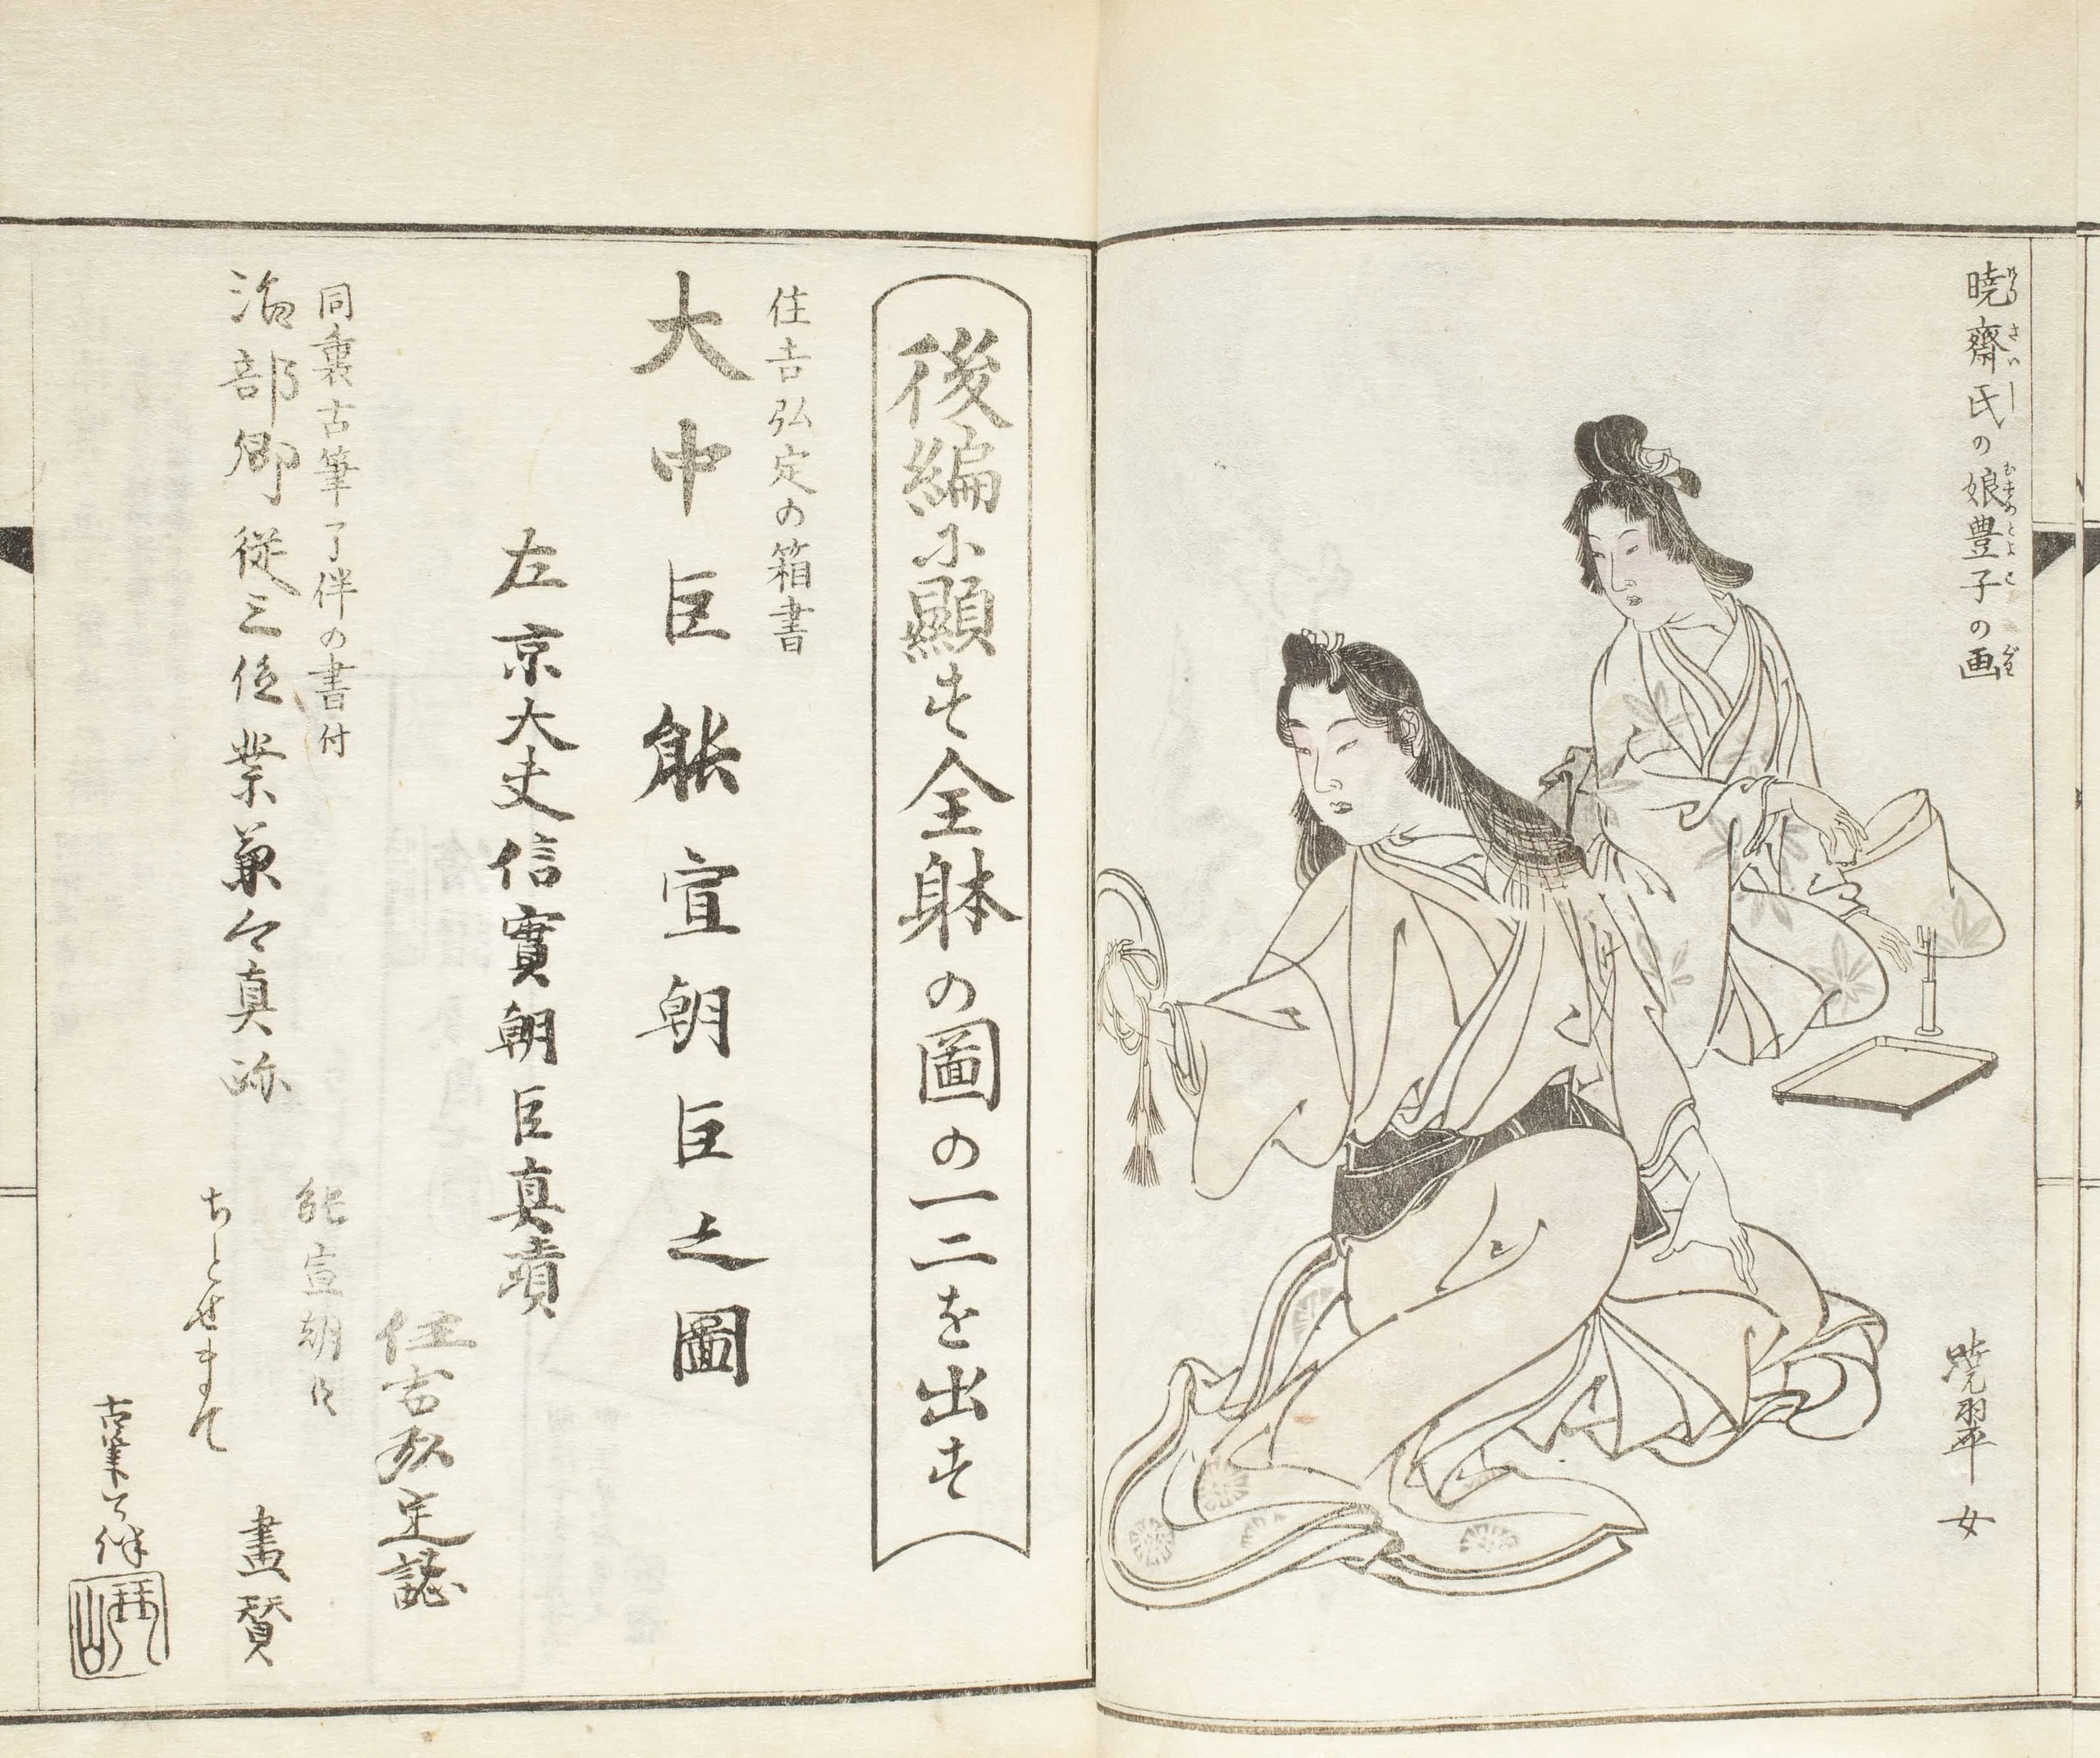 暁齋氏の娘豊子の画
暁翠女
後編に顕す全躰の圖の一二を出す
住吉弘定の箱書
大中臣能宣朝臣之圖
左京大夫信實朝臣真蹟
住吉弘定誌
同裏古筆了伴の書付
能宣朝臣
治部卿従三位業兼々真跡
ちとせまて
畫賛
古筆了伴